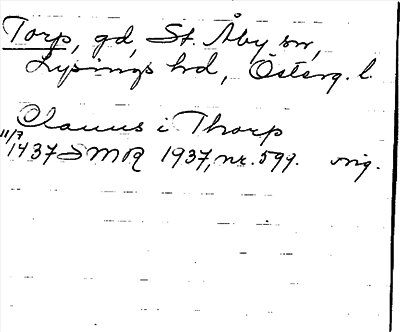 Torp, gd, St. Åby sn,
Lysings hd, Österg. l.
Clauus i Thorp
11/7 1437 SMR 1937, nr. 599. orig.